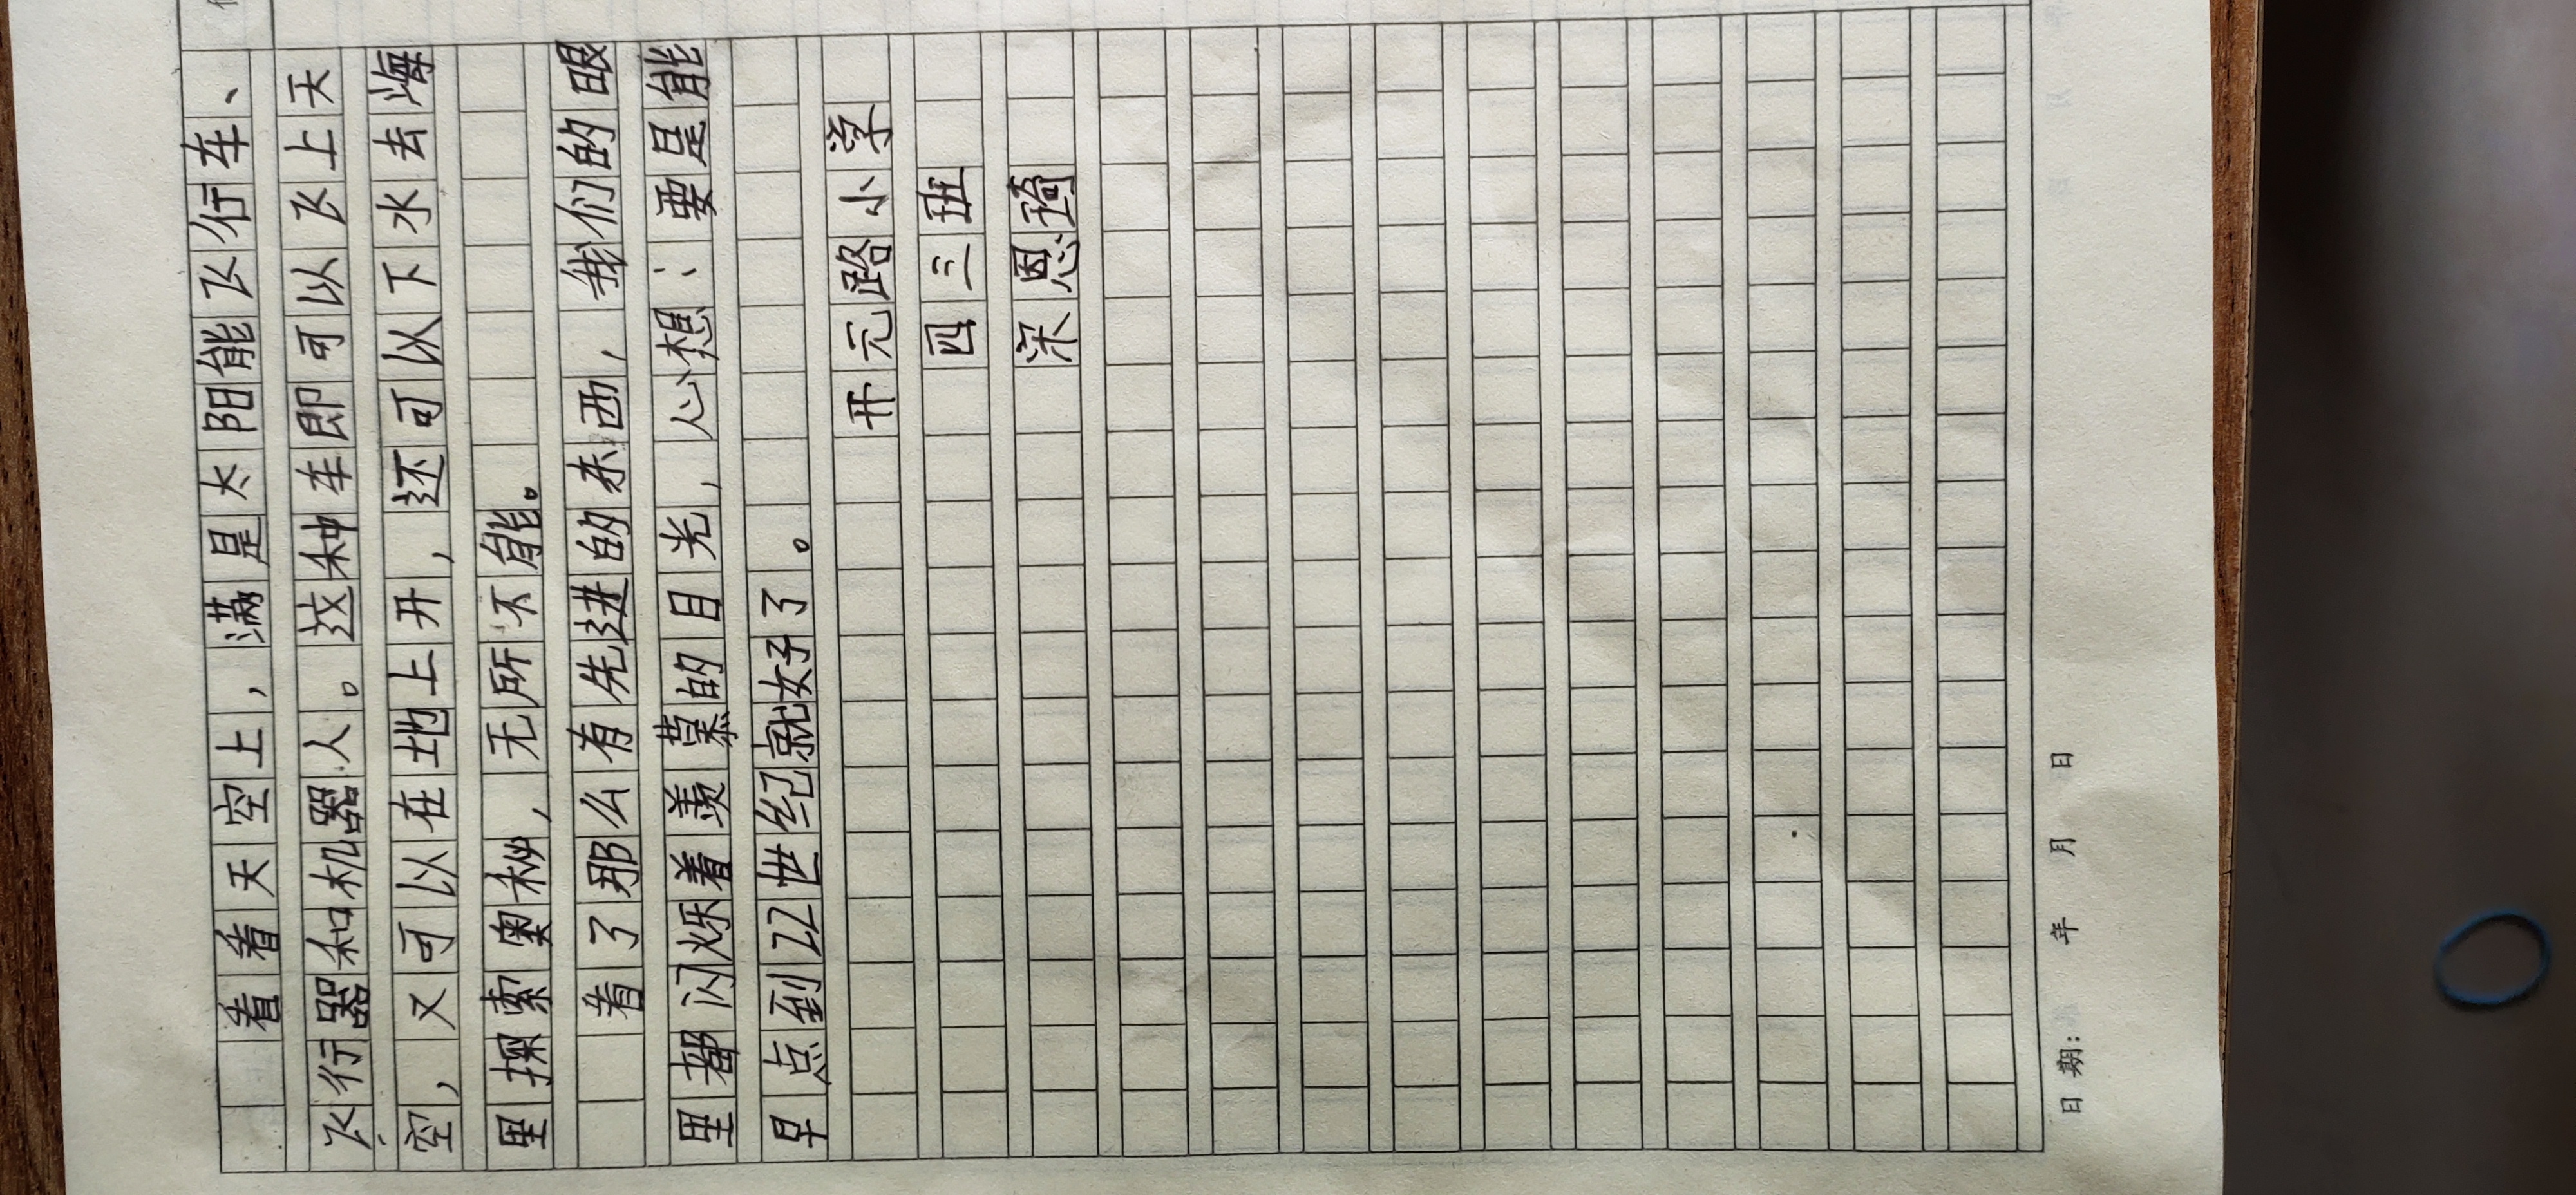 看看天空上,满是太阳能飞行车、
飞行器和机器人。这种车即可以飞上天
空,又可以在地上开,还可以下水去海
里探索奥秘,无所不能。
看了那么有先进的东西,我们的眼
里都闪烁着羡慕的目光,心想:要是能
早点到22世纪就好了。
开元路小学
四三班
深恩琦
日期: 年 月 日